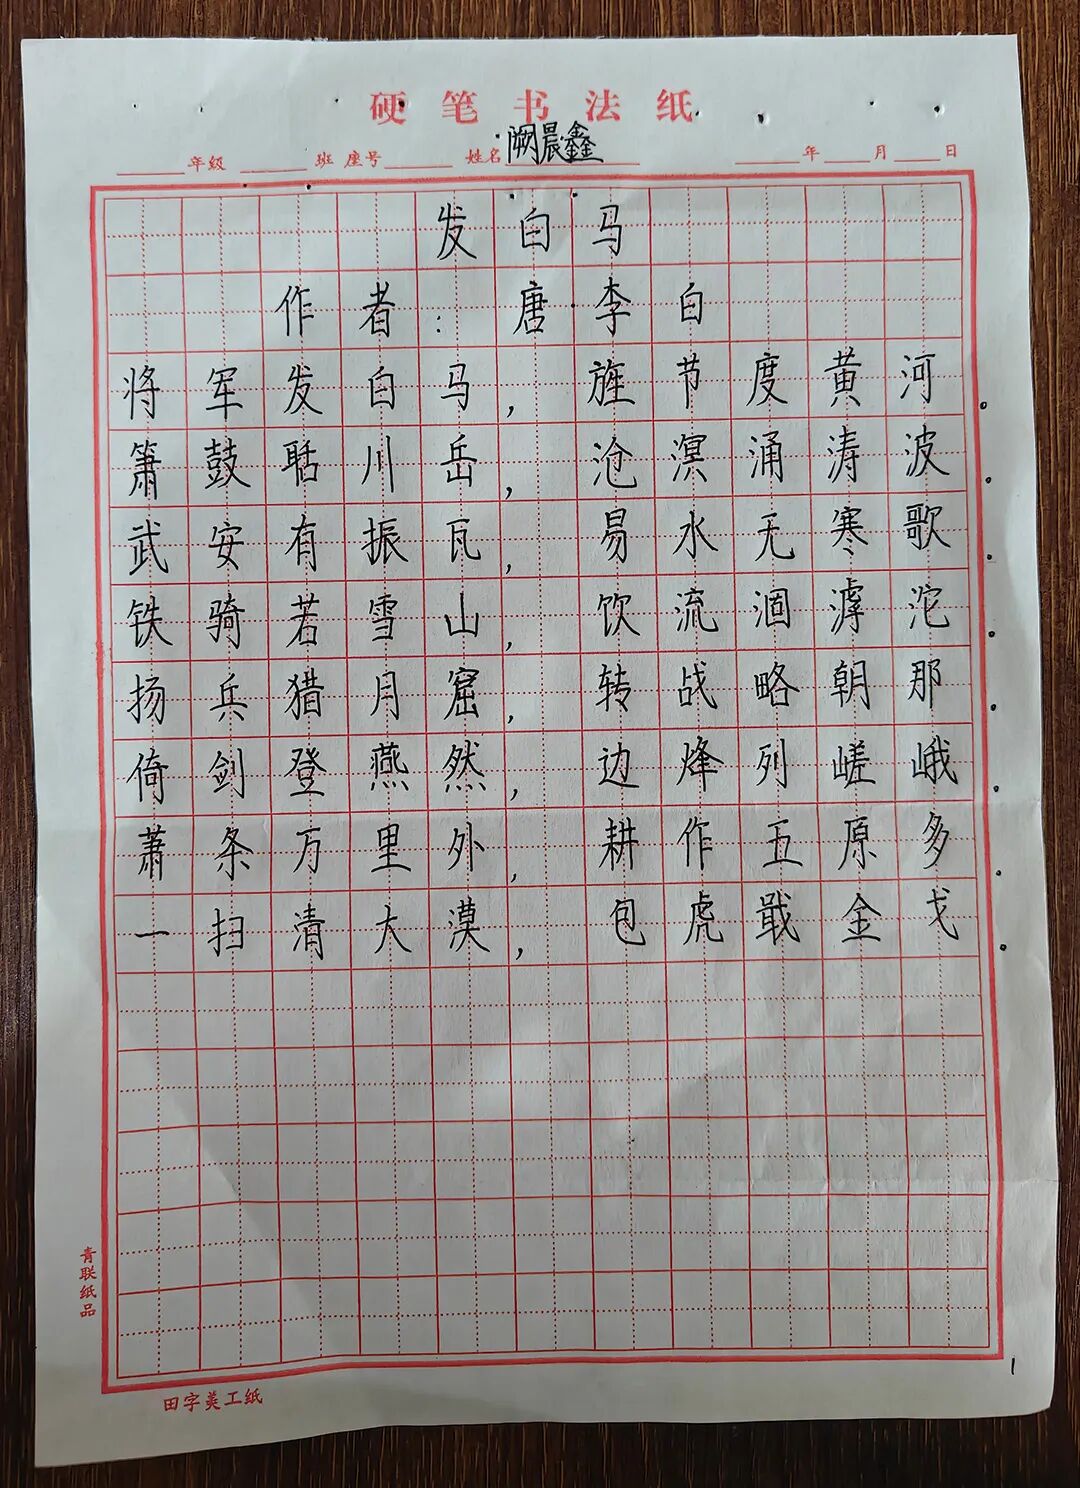 硬笔书法纸
年级 班 座号 姓名 阙晨鑫 年 月 日
发白马
作者：唐李白
将军发白马，旌节度黄河。
箫鼓聒川岳，沧溟涌涛波。
武安有振瓦，易水无寒歌。
铁骑若雪山，饮流涸滹沱。
扬兵猎月窟，转战略朝那。
倚剑登燕然，边烽列嵯峨。
萧条万里外，耕作五原多。
一扫清大漠，包虎戢金戈。
青联纸品
田字美工纸
1